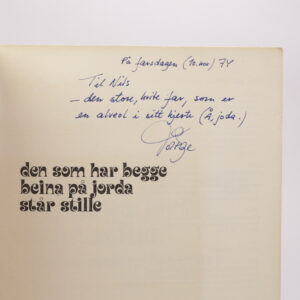 På farsdagen (10. nov) 74
Til Nils
– den store, hvite far, som er
en alveol i sitt hjerte (Å, joda.)
den som har begge
beina på jorda
står stille